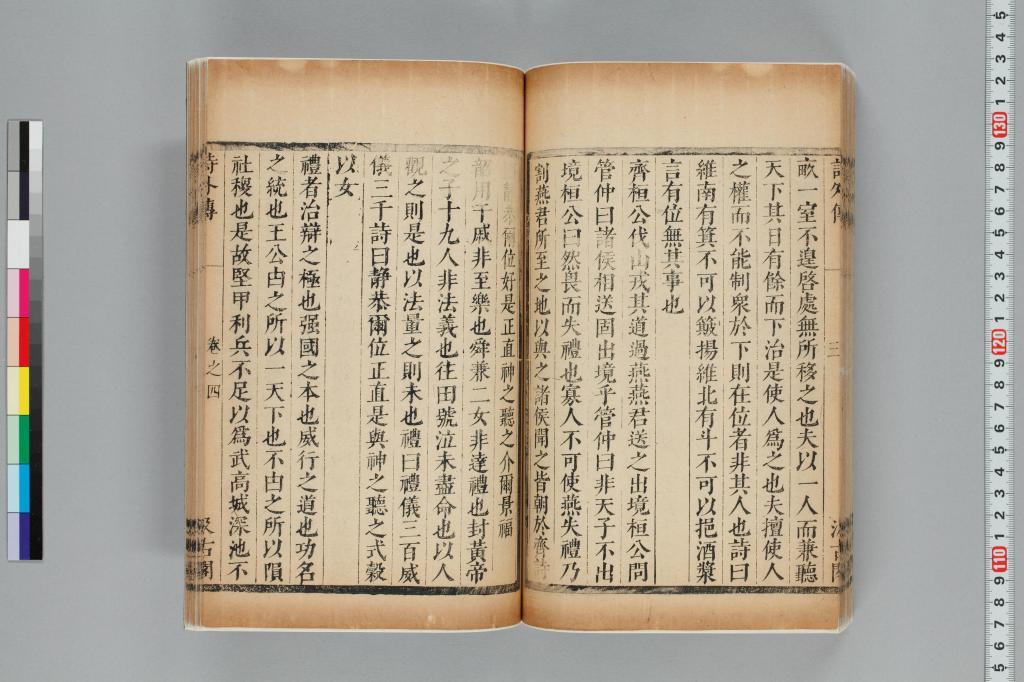 詩外傳 三 汲古閣
畝一室不遑啓處無所移之也夫以一人而兼聽
天下其日有餘而下治是使人爲之也夫擅使人
之權而不能制衆於下則在位者非其人也詩曰
維南有箕不可以簸揚維北有斗不可以挹酒漿
言有位無其事也
齊桓公伐山戎其道過燕燕君送之出境桓公問
管仲曰諸侯相送固出境乎管仲曰非天子不出
境桓公曰然畏而失禮也寡人不可使燕失禮乃
割燕君所至之地以與之諸侯聞之皆朝於齊詩
靜恭爾位好是正直神之聽之介爾景福
韶用干戚非至樂也舜兼二女非達禮也封黃帝
之子十九人非法義也往田號泣未盡命也以人
觀之則是也以法量之則未也禮曰禮儀三百威
儀三千詩曰靜恭爾位正直是與神之聽之式穀
以女
禮者治辯之極也强國之本也威行之道也功名
之統也王公由之所以一天下也不由之所以隕
社稷也是故堅甲利兵不足以爲武高城深池不
詩外傳 卷之四 汲古閣